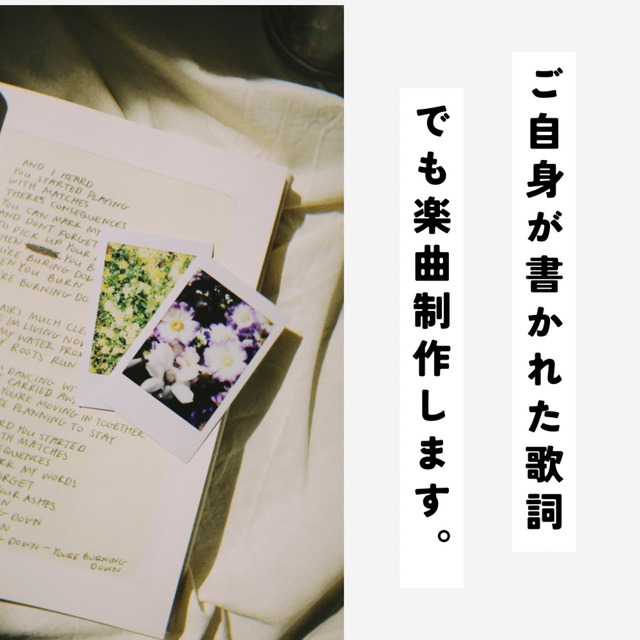 ご自身が書かれた歌詞
でも楽曲制作します。
AND I HEARD
YOU STARTED PLAYING
WITH MATCHES
THERES CONSEQUENCES
YOU CAN MARK MY
AND DONT FORGET
PICK UP YOUR
BURING DO
YOU BURN
BURNING DO
MUCH CLE
I'M LIVING NOW
WATER FROM
ROOTS RUN
DANCING W
CARRIED AW
YOU'RE MOVING IN TOGETHER
PLANNING TO STAY
YOU STARTED
MATCHES
SEQUENCES
MY WORDS
FORGET
YOUR ASHES
DOWN
DOWN - YOURE BURNING
DOWN